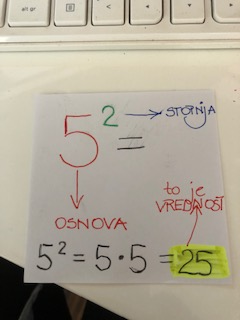 alt gr
5² = → STOPNJA
OSNOVA
to je
VREDNOST
5² = 5·5 = 25